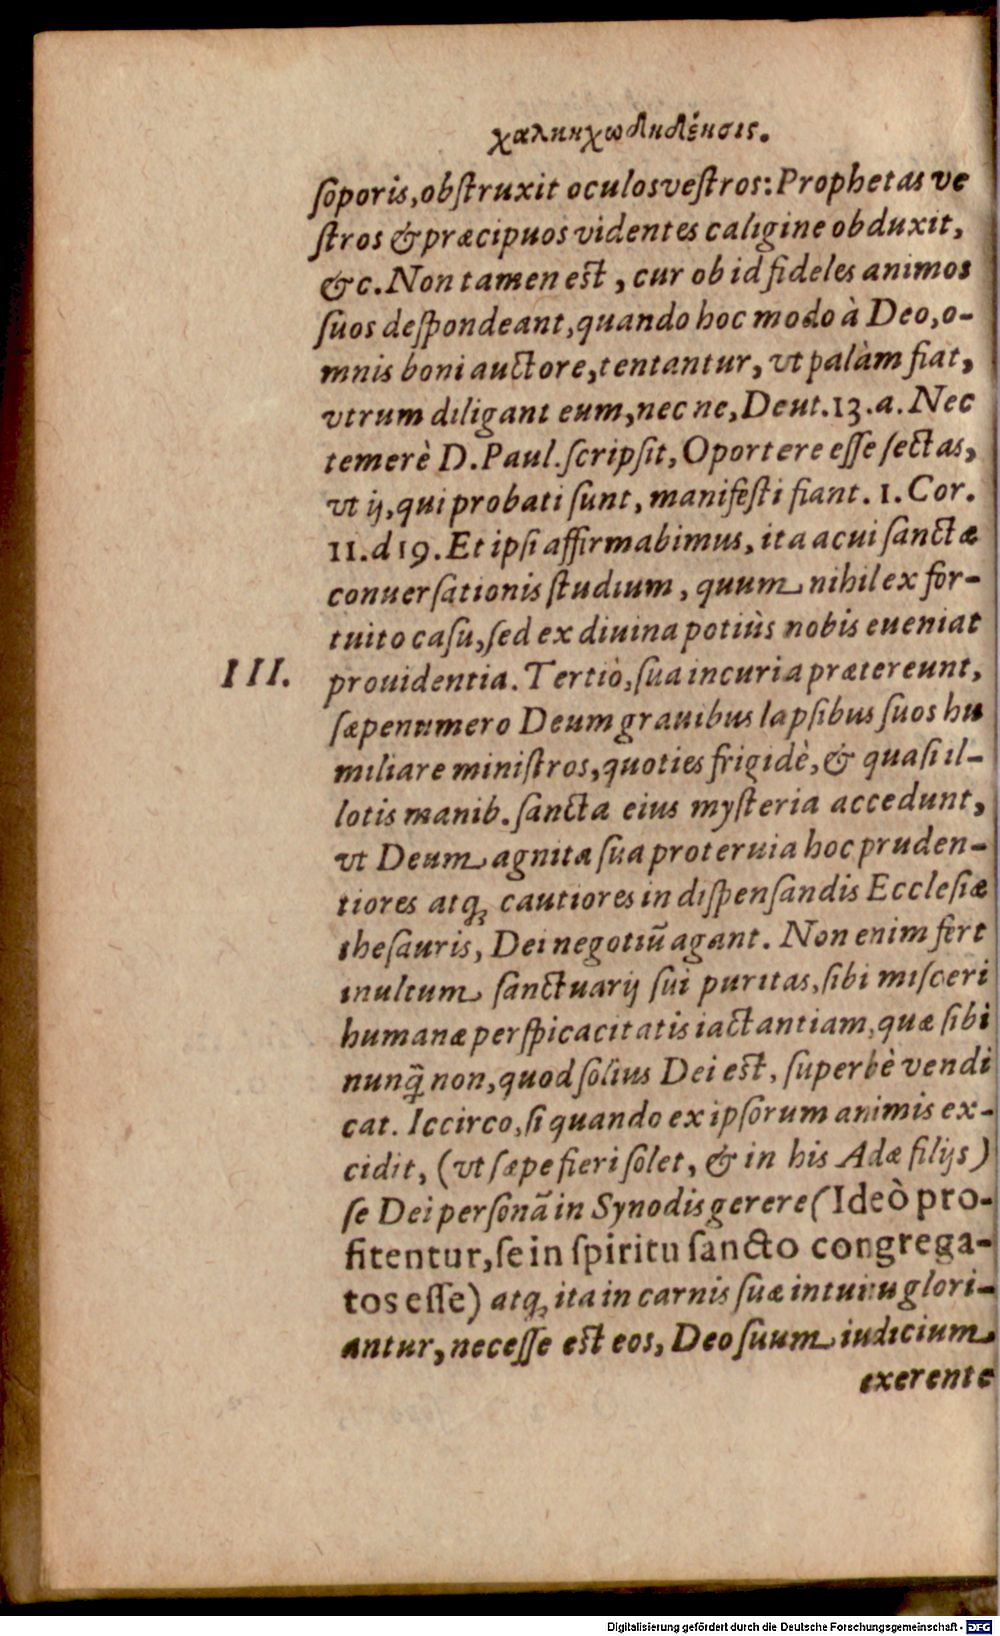 χαληκχωδηδένσις.
ſoporis,obſtruxit oculos veſtros: Prophetas ve
ſtros & præcipuos videntes caligine obduxit,
&c. Non tamen eſt, cur ob id fideles animos
ſuos deſpondeant, quando hoc modo à Deo, o-
mnis boni auctore, tentantur, vt palàm fiat,
vtrum diligant eum, nec ne, Deut. 13. a. Nec
temerè D. Paul. ſcripſit, Oportere eſſe ſectas,
vt ij, qui probati ſunt, manifeſti fiant. 1. Cor.
11. d 19. Et ipſi affirmabimus, ita acui ſanctæ
conuerſationis ſtudium, quum nihil ex for-
tuito caſu, ſed ex diuina potiùs nobis eueniat
III. prouidentia. Tertiò, ſua incuria prætereunt,
ſæpenumero Deum grauibus lapſibus ſuos hu
miliare miniſtros, quoties frigidè, & quaſi il-
lotis manib. ſancta eius myſteria accedunt,
vt Deum agnita ſua proteruia hoc pruden-
tiores atq; cautiores in diſpenſandis Eccleſiæ
theſauris, Dei negotiū agant. Non enim fert
inultum ſanctuarij ſui puritas, ſibi miſceri
humanæ perſpicacitatis iactantiam, quæ ſibi
nunq̄ non, quod ſolius Dei eſt, ſuperbè vendi
cat. Iccirco, ſi quando ex ipſorum animis ex-
cidit, (vt ſæpe fieri ſolet, & in his Adæ filijs)
ſe Dei perſonā in Synodis gerere (Ideò pro-
fitentur, ſe in ſpiritu ſancto congrega-
tos eſſe) atq; ita in carnis ſuæ intuitu glori-
antur, neceſſe eſt eos, Deo ſuum iudicium
exerente
Digitalisierung gefördert durch die Deutsche Forschungsgemeinschaft - DFG